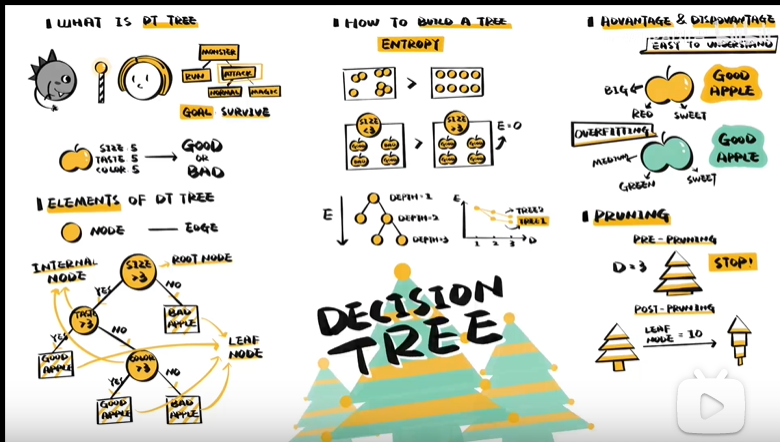 WHAT IS DT TREE
MONSTER
RUN
ATTACK
NORMAL
MAGIC
GOAL SURVIVE
SIZE 5
TASTE 5
COLOR 5
GOOD
OR
BAD
ELEMENTS OF DT TREE
NODE
EDGE
INTERNAL
NODE
SIZE
>3
ROOT NODE
YES
NO
TASTE
>3
BAD
APPLE
YES
NO
GOOD
APPLE
COLOR
>3
LEAF
NODE
YES
NO
GOOD
APPLE
BAD
APPLE
HOW TO BUILD A TREE
ENTROPY
>
SIZE
<3
>
SIZE
>3
E=0
GOOD
GOOD
BAD
BAD
GOOD
GOOD
GOOD
GOOD
E
DEPTH=1
DEPTH=2
DEPTH=3
E
TREE2
TREE1
1 2 3 D
DECISION
TREE
ADVANTAGE & DISADVANTAGE
EASY TO UNDERSTAND
BIG
RED
SWEET
GOOD
APPLE
OVERFITTING
MEDIUM
GREEN
SWEET
GOOD
APPLE
PRUNING
PRE-PRUNING
D=3
STOP!
POST-PRUNING
LEAF
NODE = 10